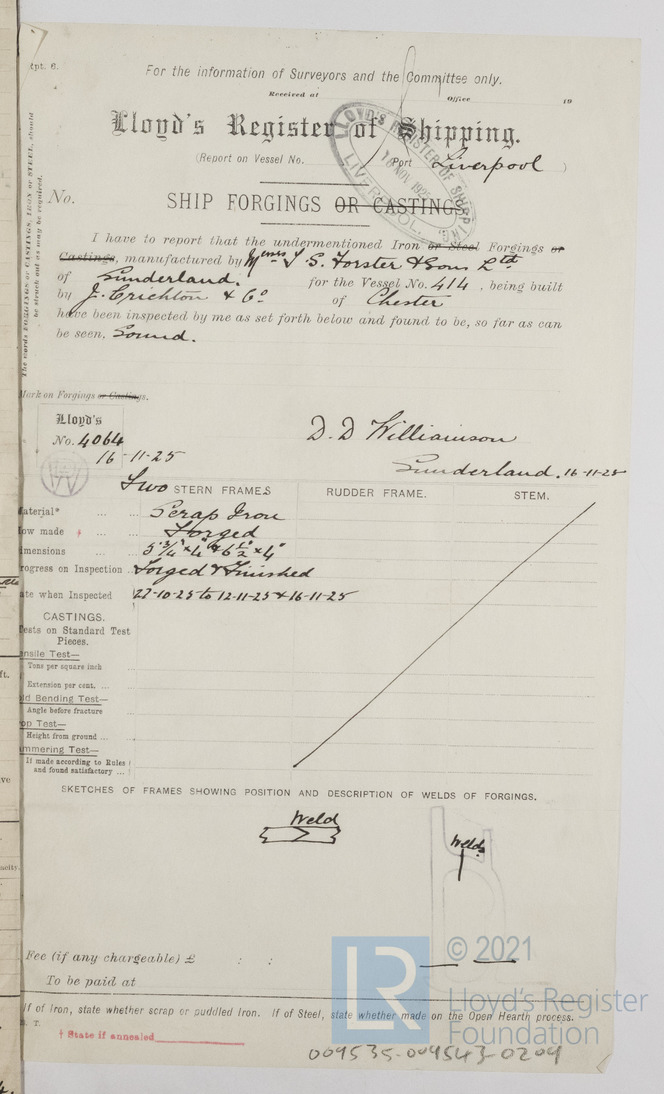 Rpt. 6.
For the information of Surveyors and the Committee only.
Received at Office 19
Lloyd's Register of Shipping.
(Report on Vessel No. Port Liverpool )
LLOYD'S REGISTER OF SHIPPING
18 NOV 1925
LIVERPOOL
No. SHIP FORGINGS OR CASTINGS
The words FORGINGS or CASTINGS, IRON or STEEL, should
be struck out as may be required.
I have to report that the undermentioned Iron or Steel Forgings or
Castings, manufactured by Messrs J S. Forster & Sons Ltd
of Sunderland. for the Vessel No. 414, being built
by J. Crichton & Co of Chester
have been inspected by me as set forth below and found to be, so far as can
be seen, Sound.
Mark on Forgings or Castings.
Lloyd's
No. 4064
16-11-25
D. D Williamson
Sunderland. 16-11-25
Two STERN FRAMES RUDDER FRAME. STEM.
aterial* ... ... Scrap Iron
ow made † ... ... Forged
imensions ... ... 5 3/4" x 4" & 6 1/2" x 4"
rogress on Inspection .. Forged & Finished
ate when Inspected 27-10-25 to 12-11-25 & 16-11-25
CASTINGS.
ests on Standard Test
Pieces.
nsile Test—
Tons per square inch ...
Extension per cent. ... ...
ld Bending Test—
Angle before fracture ...
op Test—
Height from ground ... ...
mmering Test—
If made according to Rules
and found satisfactory ...
SKETCHES OF FRAMES SHOWING POSITION AND DESCRIPTION OF WELDS OF FORGINGS.
Weld
Welds
Fee (if any chargeable) £ : :
To be paid at
If of Iron, state whether scrap or puddled Iron. If of Steel, state whether made on the Open Hearth process.
† State if annealed
© 2021
LR
Lloyd's Register
Foundation
009535-009543-0209